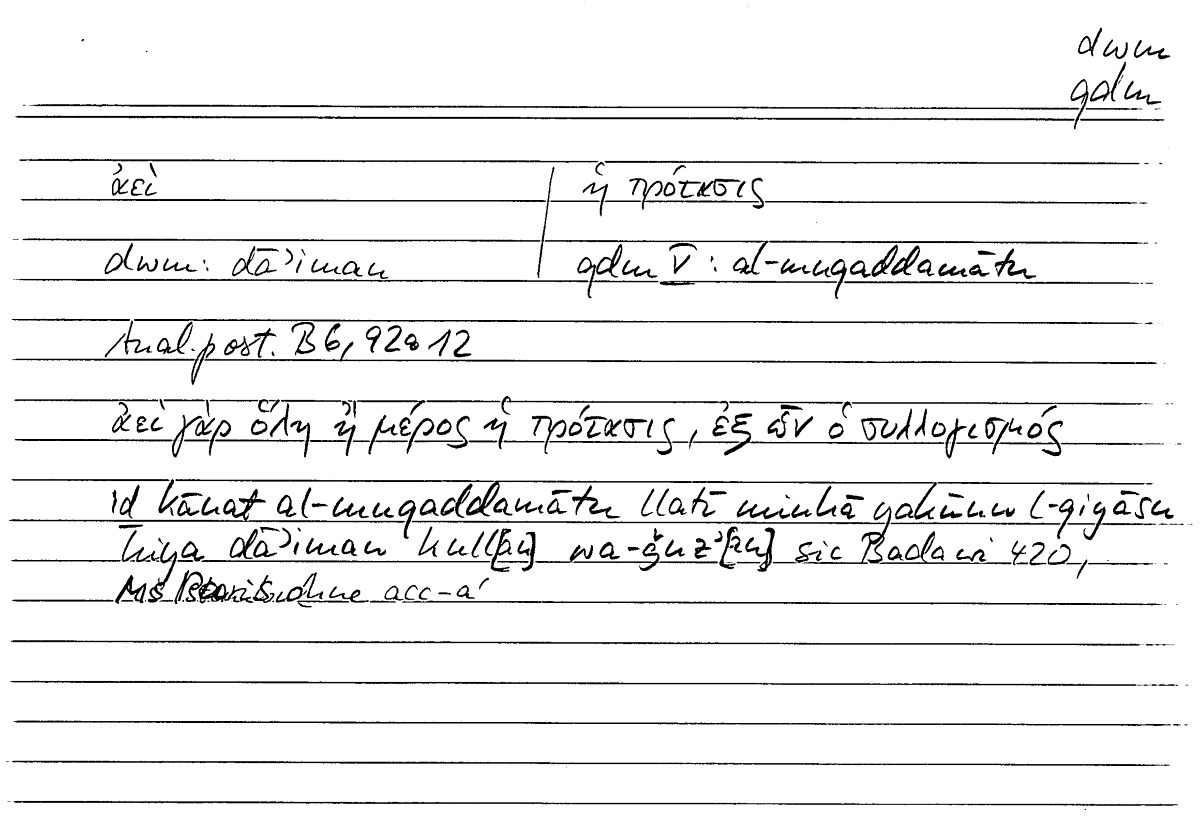 dwm
qdm
ἀεὶ
ἡ πρότασις
dwm: dāʾiman
qdm V̅ : al-muqaddamātu
Anal. post. B6, 92a12
ἀεὶ γὰρ ὅλη ἢ μέρος ἡ πρότασις, ἐξ ὧν ὁ συλλογισμός
id kānat al-muqaddamātu llatī minhā yakūnu l-qiyāsu
hiya dāʾiman kull[an] wa-ǧuzʾ[an] sic Badawi 420,
Ms ohne acc-a